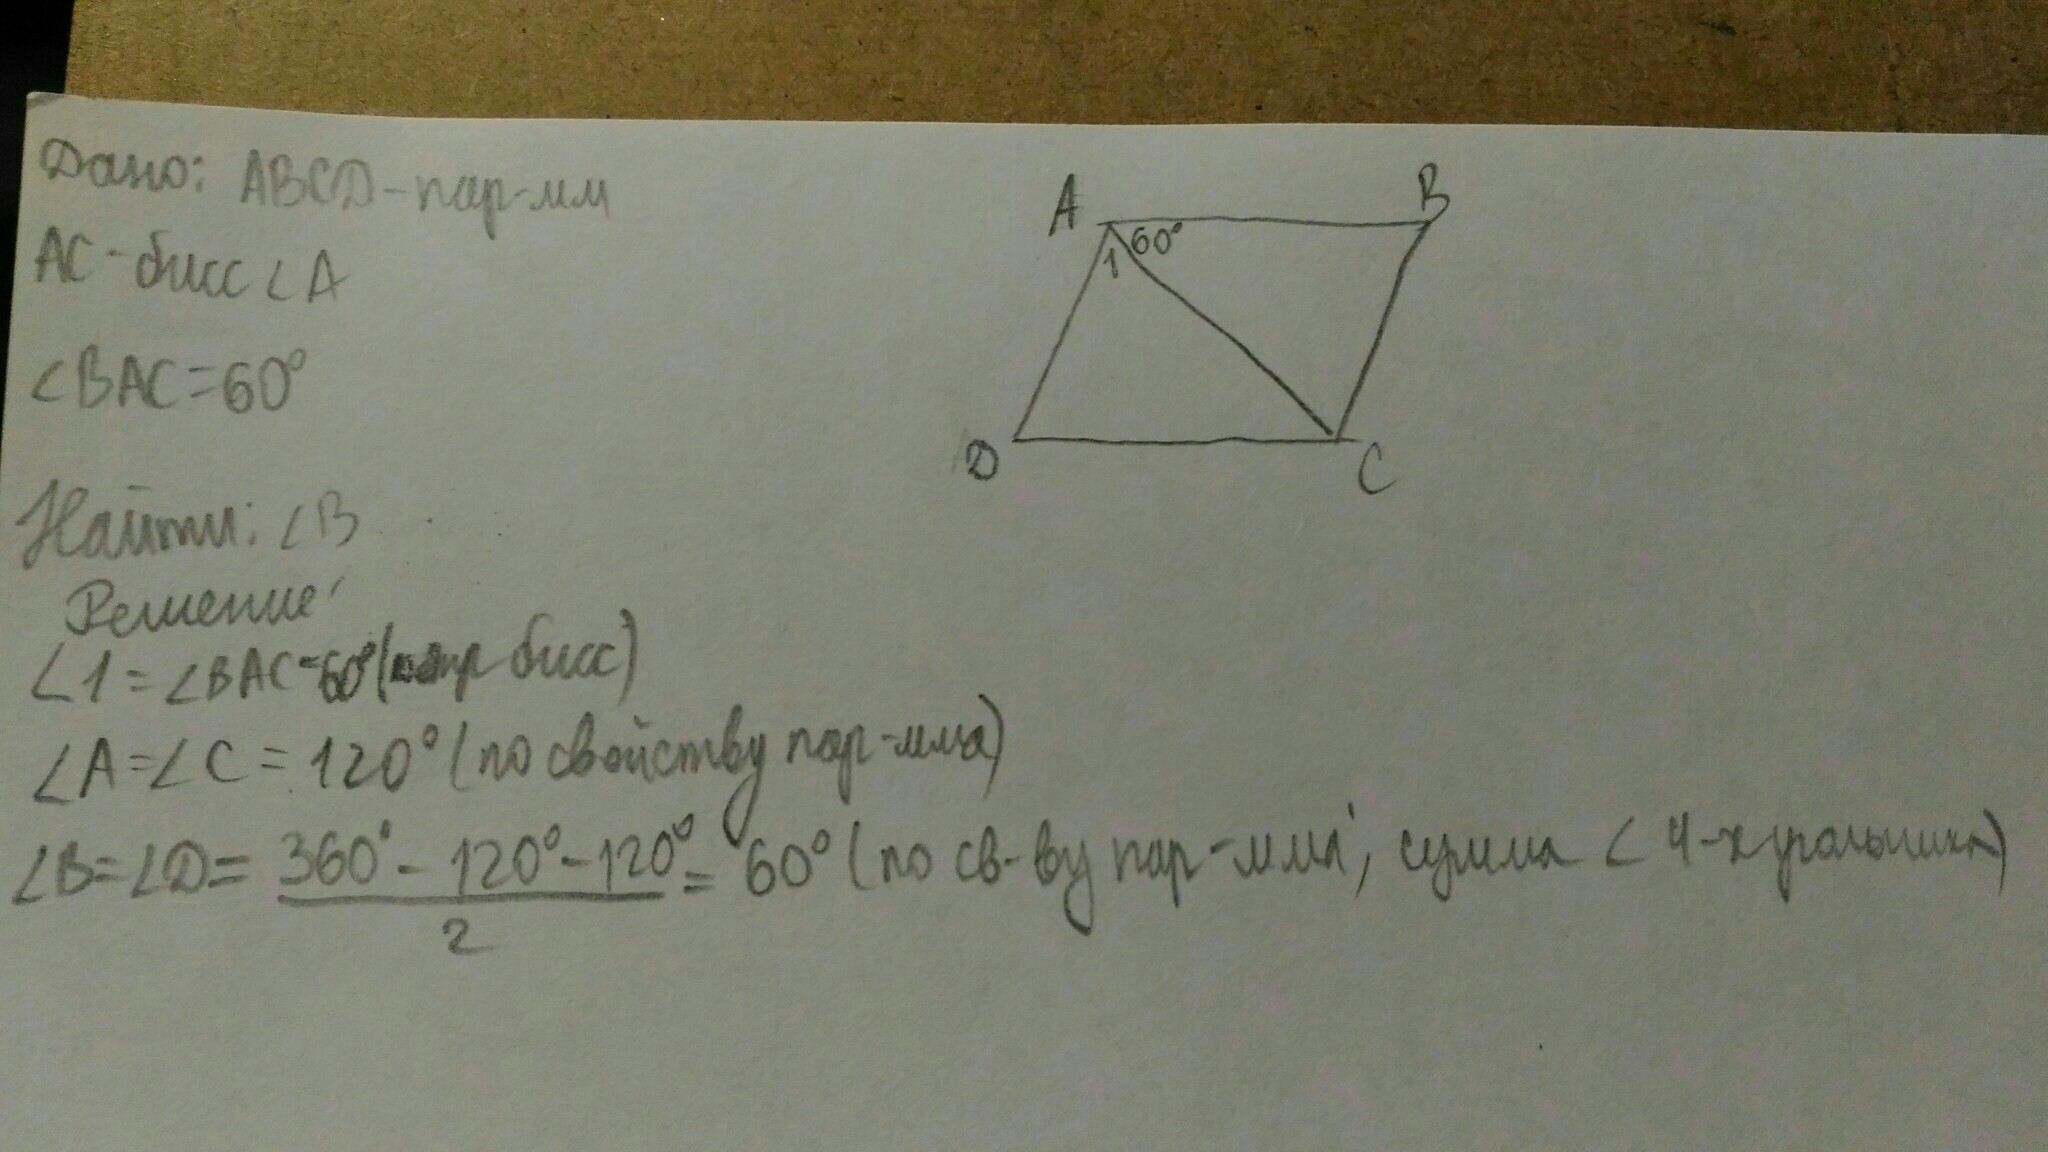 Дано: ABCD-пар-мм
AC-бисс ∠A
∠BAC=60°
Найти: ∠B
Решение:
∠1=∠BAC=60° ( бисс)
∠A=∠C=120° (по свойству пар-мма)
∠B=∠D= 360°-120°-120° / 2 = 60° (по св-ву пар-мма, сумма ∠ 4-хугольника)
A
B
60°
1
D
C